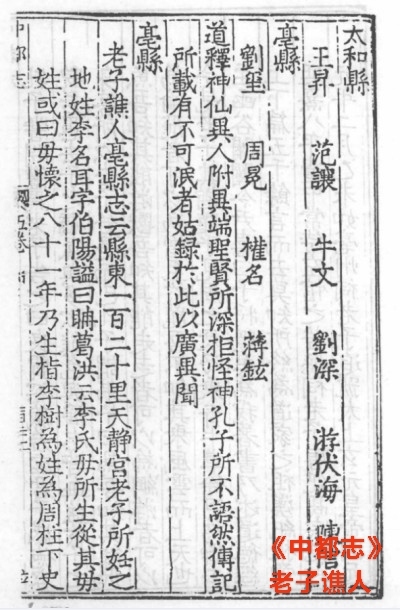 太和縣
王昇　范讓　牛文　劉深　游伏海　陳
亳縣
劉璽　周冕　權名　蔣鉉
道釋神仙異人附異端聖賢所深拒怪神孔子所不語然傳記
所載有不可泯者姑錄於此以廣異聞
亳縣
老子譙人亳縣志云縣東一百二十里天静宫老子所姓之
地姓李名耳字伯陽謚曰聃葛洪云李氏毋所生從其毋
姓或曰毋懷之八十一年乃生指李樹為姓為周柱下史
中都志
《中都志》
老子譙人